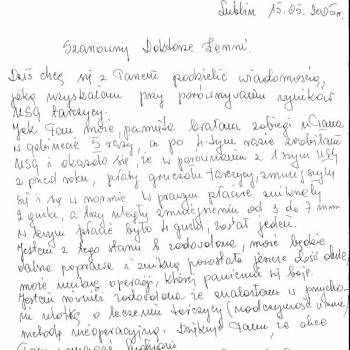 Lublin 15.05.2005r.
Szanowny Doktorze Lenni.
Dziś chcę się z Panem podzielić wiadomością,
jaką uzyskałam przy porównywaniu wyników
USG tarczycy.
Jak Pan może pamięta brałam zabiegi u Pana
w gabinecie 5 razy, a po 4-tym razie zrobiłam
USG i okazało się, że w porównaniu z 1 szym USG
z przed roku, płaty gruczołu tarczycy, zmniejszyły
się i są w normie. W prawym płacie zniknęły
2 guzki, a trzy uległy zmniejszeniu od 3 do 7 mm
w lewym płacie było 4 guzki, został jeden.
Jestem z tego stanu b. zadowolona, może będzie
dalsza poprawa i znikną pozostałe jeszcze dość duże,
może uniknę operacji, której panicznie się boję.
Jestem również zadowolona że znalazłam w przychod
ni ulotkę o leczeniu tarczycy (nadczynność i inne)
metodą nieoperacyjną. Dziękuję Panu, że chce
Pan pomagać ludziom